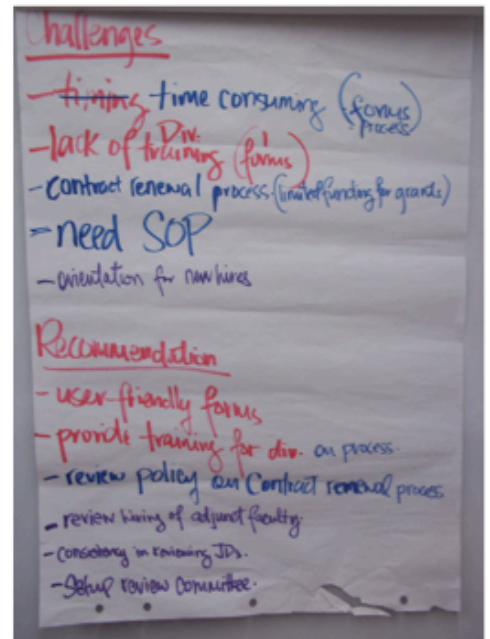 Challenges
- timing time consuming (forms
process)
Div.
- lack of training (forms)
- contract renewal process (limited funding for grants)
- need SOP
- orientation for new hires
Recommendation
- user-friendly forms
- provide training for div. on process.
- review policy on Contract renewal process
- review hiring of adjunct faculty
- consistency in reviewing JDs.
- Setup review committee.